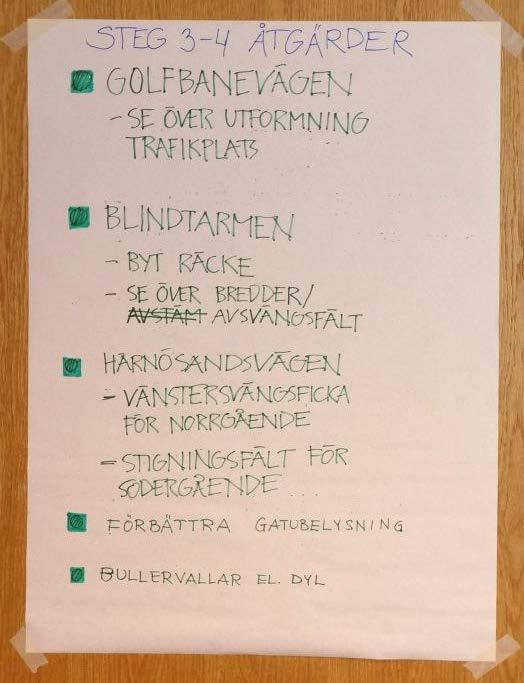 STEG 3-4 ÅTGÄRDER
GOLFBANEVÄGEN
- SE ÖVER UTFORMNING
TRAFIKPLATS
BLINDTARMEN
- BYT RÄCKE
- SE ÖVER BREDDER/
AVSTÄM AVSVÄNGSFÄLT
HÄRNÖSANDSVÄGEN
- VÄNSTERSVÄNGSFICKA
FÖR NORRGÅENDE
- STIGNINGSFÄLT FÖR
SÖDERGÅENDE
FÖRBÄTTRA GATUBELYSNING
BULLERVALLAR EL. DYL